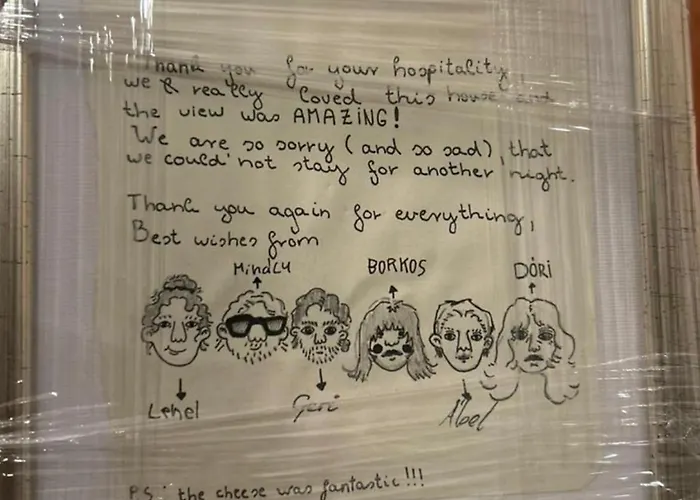 Thank you for your hospitality,
we really loved this house and
the view was AMAZING!
We are so sorry (and so sad), that
we could not stay for another night.
Thank you again for everything,
Best wishes from
MiNdCy BORKOS DÓRi
Lehel Geri Ábel
PS: the cheese was fantastic!!!